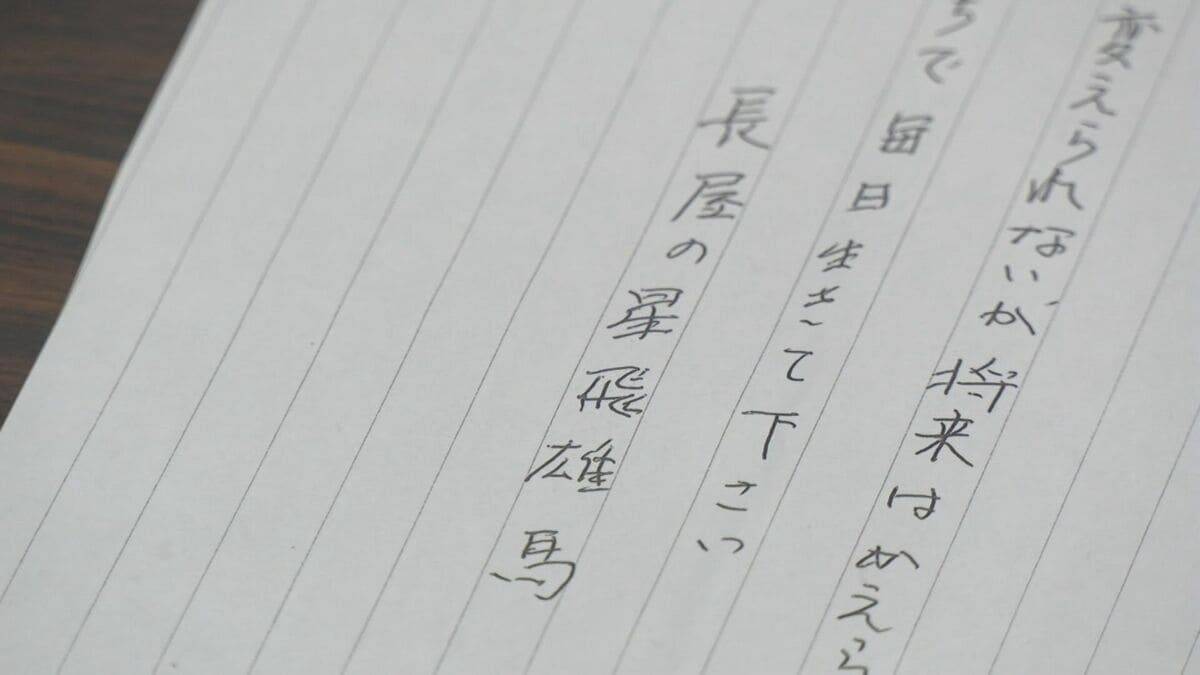 変えられないが将来はかえら
ちで毎日生きて下さい
長屋の星飛雄馬